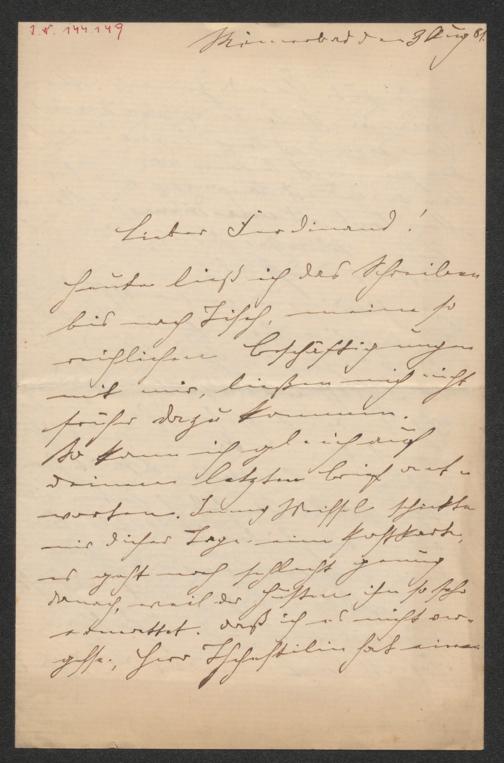 I. N. 144.149
Römerbad den 3 Aug 81.
Lieber Ferdinand!
Heute ließ ich das Schreiben
bis nach Tisch, meine so
reichlichen Beschäftigungen
mit mir, ließen mich nicht
früher dazu kommen.
So kann ich gleich auf
deinen letzten Brief ant-
worten. Jenny schickte
mir dieser Tage eine Postkarte,
es geht noch schlecht genug
danach, weil der Husten ihn so sehr
ermattet. daß ich es nicht ver-
gesse, Herr hat einen